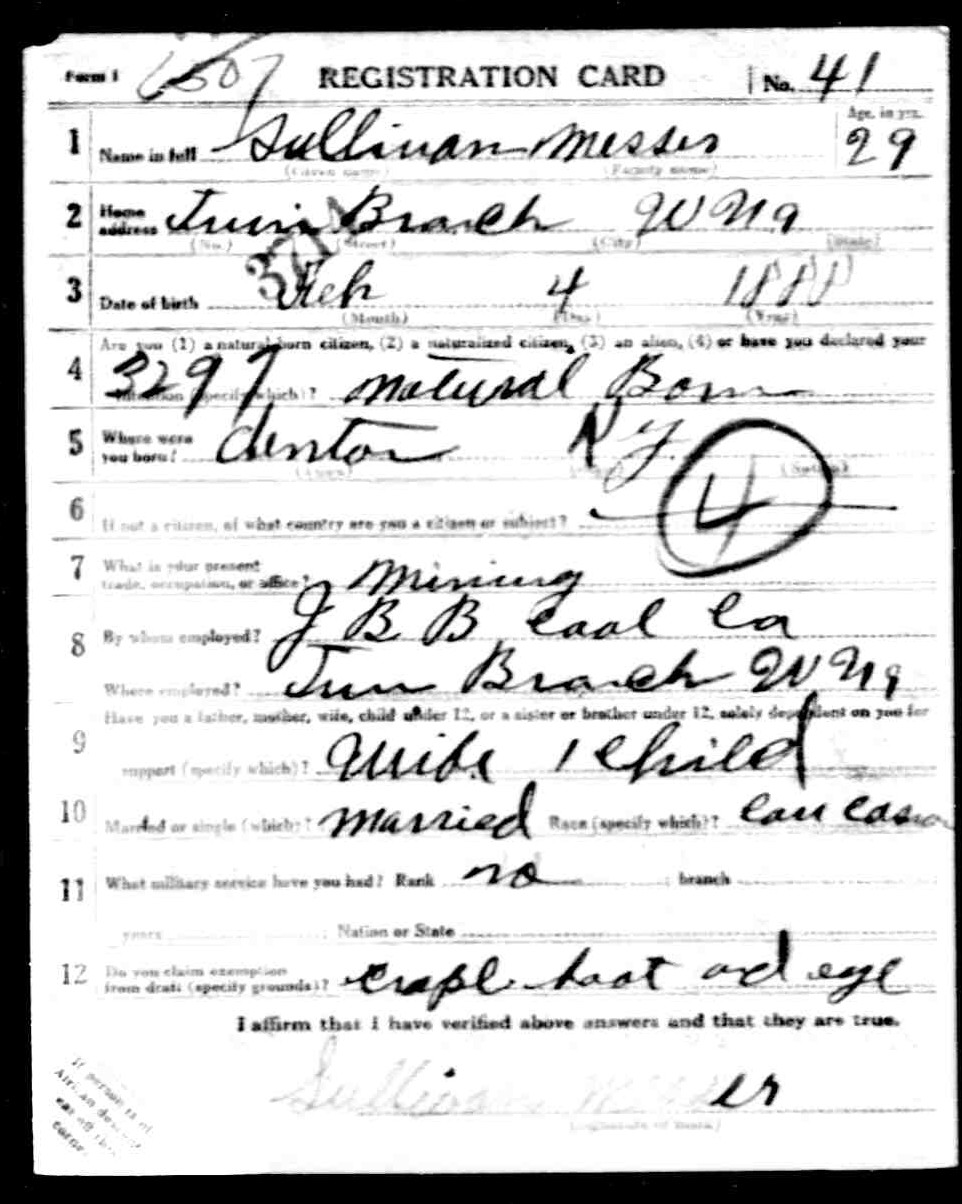 Form 1 REGISTRATION CARD No. 41
Age, in yrs.
1 Name in full Sullivan Messer 29
(Given name) (Family name)
2 Home address Twin Branch W Va
(No.) (Street) (City) (State)
3 Date of birth Feb 4 1888
(Month) (Day) (Year)
Are you (1) a natural-born citizen, (2) a naturalized citizen, (3) an alien, (4) or have you declared your
4 intention (specify which)? Natural Born
3297
5 Where were you born? Denton Ky
(Town) (State) (Nation)
4
6 If not a citizen, of what country are you a citizen or subject?
7 What is your present trade, occupation, or office? Mining
8 By whom employed? J B B Coal Co
Where employed? Twin Branch W Va
Have you a father, mother, wife, child under 12, or a sister or brother under 12, solely dependent on you for
9 support (specify which)? Wife 1 Child
10 Married or single (which)? Married Race (specify which)? Caucasian
11 What military service have you had? Rank no ; branch
years ; Nation or State
12 Do you claim exemption from draft (specify grounds)? cripl foot and eye
I affirm that I have verified above answers and that they are true.
Sullivan Messer
(Signature or mark)
If person is of
African descent,
cut off this
corner